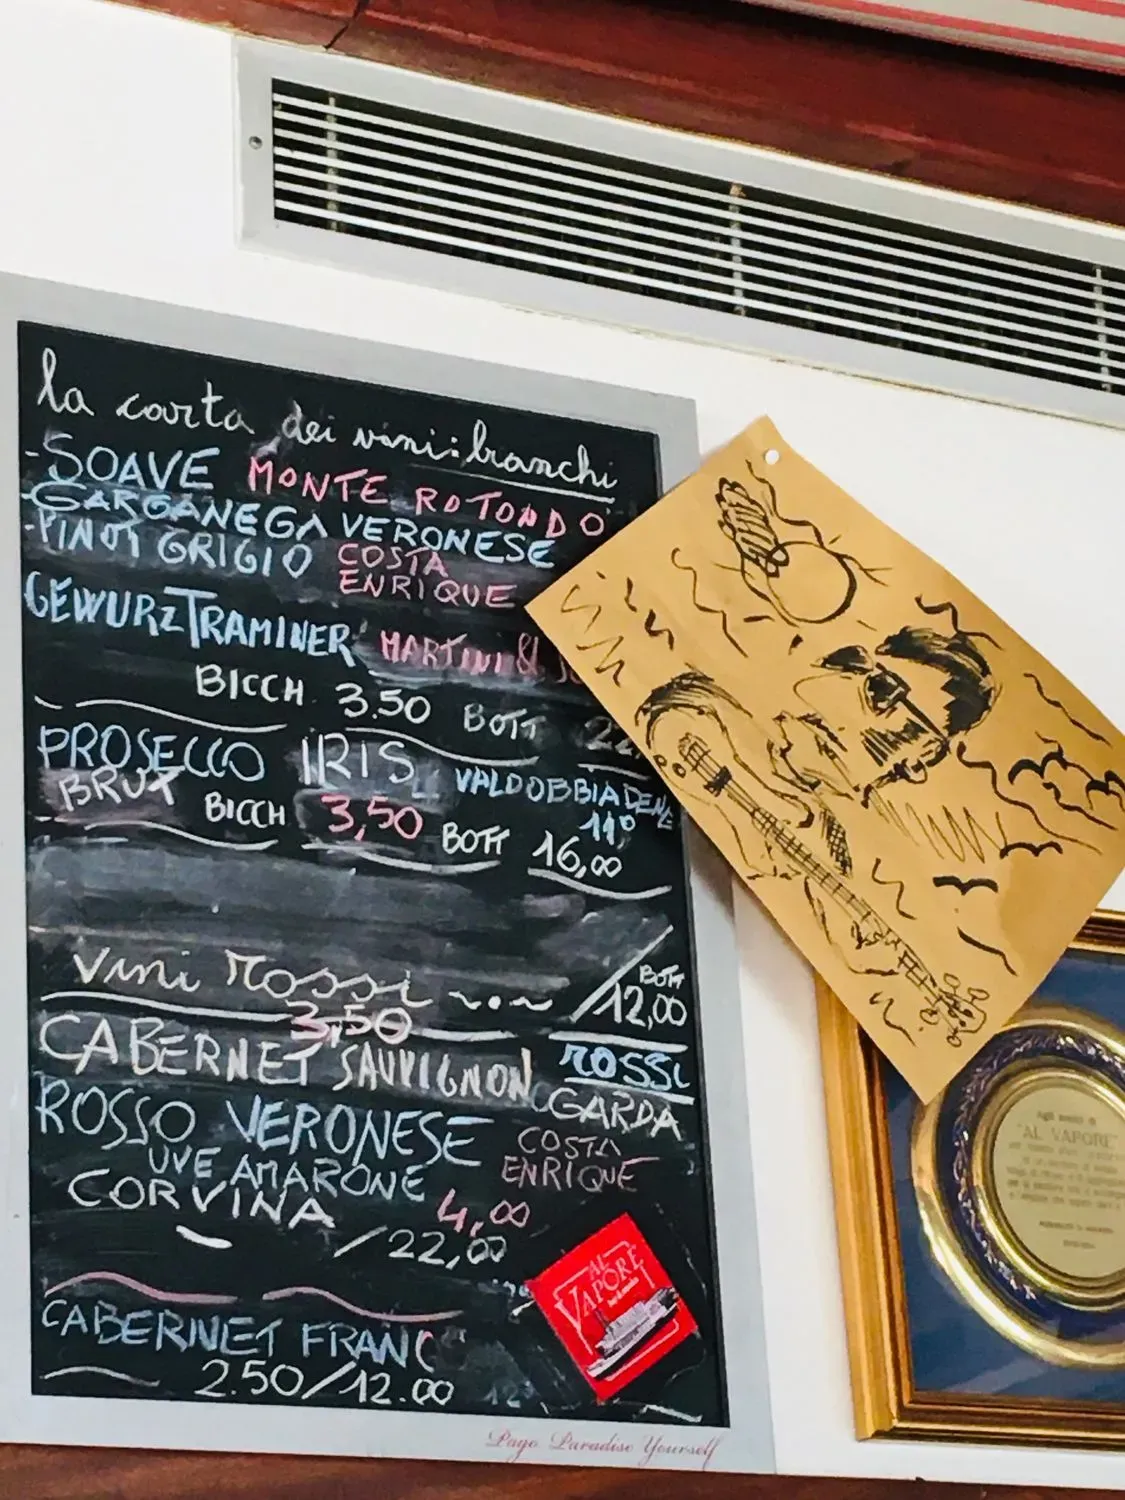 la carta dei vini: bianchi
-SOAVE MONTE ROTONDO
-GARGANEGA VERONESE
-PINOT GRIGIO COSTA ENRIQUE
GEWURZTRAMINER MARTINI &
BICCH. 3.50 BOTT 22
PROSECCO IRIS VALDOBBIADENE
BRUT BICCH 3,50 BOTT 16,00
11°
vini rossi
BOTT
3,50 / 12,00
CABERNET SAUVIGNON
ROSSI
GARDA
ROSSO VERONESE COSTA
UVE AMARONE ENRIQUE
CORVINA 4,00
/22,00
CABERNET FRANC
2.50/12.00
AL
VAPORE
Pago Paradiso Yourself
"AL VAPORE"